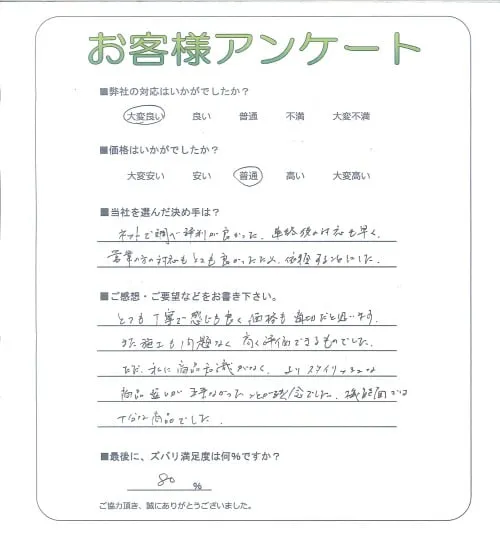 お客様アンケート
■弊社の対応はいかがでしたか？
大変良い 良い 普通 不満 大変不満
■価格はいかがでしたか？
大変安い 安い 普通 高い 大変高い
■当社を選んだ決め手は？
ネットで調べ評判が良かった。連絡後の対応も早く、
営業の方の対応もとても良かったため、依頼することにした。
■ご感想・ご要望などをお書き下さい。
とても丁寧で感じも良く価格も適切だと思います。
また施工も問題なく高く評価できるものでした。
ただ、私に商品知識がなく、よりスタイリッシュな
商品選びが出来なかったことが残念でした。機能面では
十分な商品でした。
■最後に、ズバリ満足度は何％ですか？
80 ％
ご協力頂き、誠にありがとうございました。